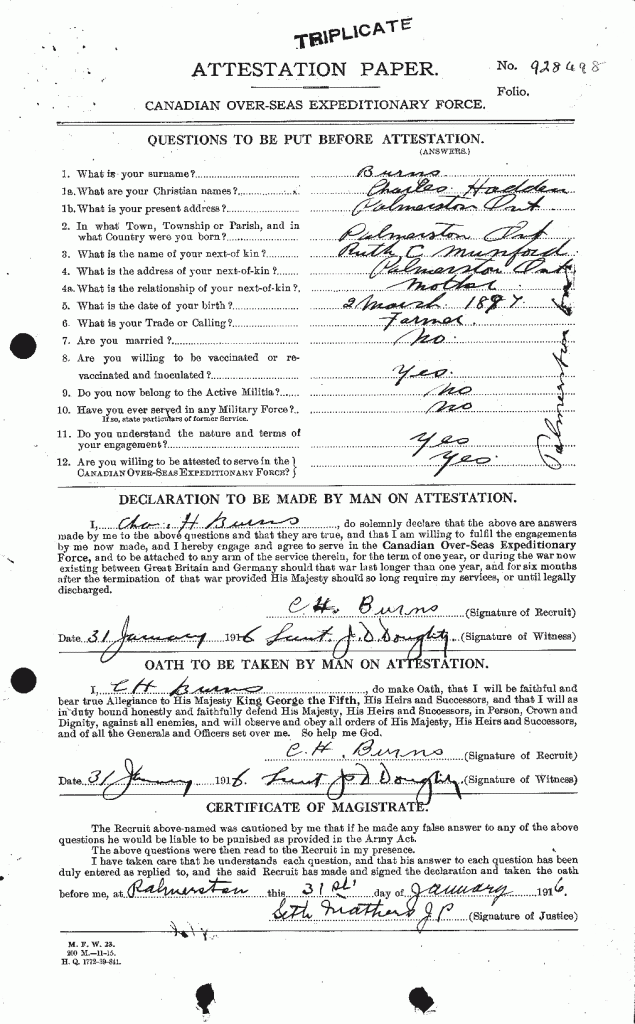 TRIPLICATE
ATTESTATION PAPER.
No. 928498
Folio.
CANADIAN OVER-SEAS EXPEDITIONARY FORCE.
QUESTIONS TO BE PUT BEFORE ATTESTATION.
(ANSWERS.)
1. What is your surname? Burns
1a. What are your Christian names? Charles Hadden
1b. What is your present address? Palmerston Ont
2. In what Town, Township or Parish, and in
what Country were you born? Palmerston Ont
3. What is the name of your next-of kin? Ruth C Munford
4. What is the address of your next-of-kin? Palmerston Ont
4a. What is the relationship of your next-of-kin? Mother
5. What is the date of your birth? 2 March 1897
6. What is your Trade or Calling? Farmer.
7. Are you married? No.
8. Are you willing to be vaccinated or re-
vaccinated and inoculated? Yes.
9. Do you now belong to the Active Militia? No
10. Have you ever served in any Military Force? No
If so, state particulars of former Service.
11. Do you understand the nature and terms of
your engagement? Yes
12. Are you willing to be attested to serve in the
CANADIAN OVER-SEAS EXPEDITIONARY FORCE? Yes
Palmerston Ont
DECLARATION TO BE MADE BY MAN ON ATTESTATION.
I, Cha. H Burns, do solemnly declare that the above are answers
made by me to the above questions and that they are true, and that I am willing to fulfil the engagements
by me now made, and I hereby engage and agree to serve in the Canadian Over-Seas Expeditionary
Force, and to be attached to any arm of the service therein, for the term of one year, or during the war now
existing between Great Britain and Germany should that war last longer than one year, and for six months
after the termination of that war provided His Majesty should so long require my services, or until legally
discharged.
C. H. Burns (Signature of Recruit)
Date 31 January 1916 Lieut. J. D. Doughty. (Signature of Witness)
OATH TO BE TAKEN BY MAN ON ATTESTATION.
I, C H Burns, do make Oath, that I will be faithful and
bear true Allegiance to His Majesty King George the Fifth, His Heirs and Successors, and that I will as
in duty bound honestly and faithfully defend His Majesty, His Heirs and Successors, in Person, Crown and
Dignity, against all enemies, and will observe and obey all orders of His Majesty, His Heirs and Successors,
and of all the Generals and Officers set over me. So help me God.
C. H. Burns (Signature of Recruit)
Date 31 January 1916 Lieut J D Doughty. (Signature of Witness)
CERTIFICATE OF MAGISTRATE.
The Recruit above-named was cautioned by me that if he made any false answer to any of the above
questions he would be liable to be punished as provided in the Army Act.
The above questions were then read to the Recruit in my presence.
I have taken care that he understands each question, and that his answer to each question has been
duly entered as replied to, and the said Recruit has made and signed the declaration and taken the oath
before me, at Palmerston this 31st day of January 1916.
Seth Mathers J P (Signature of Justice)
M. F. W. 23.
200 M.—11-15.
H. Q. 1772-39-841.